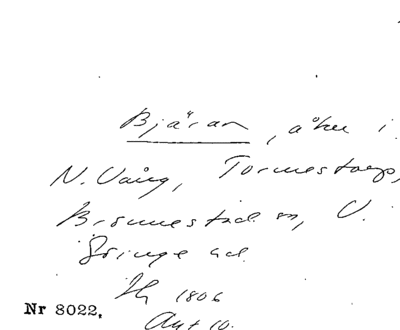 Bjäran, åker i
N. Vång, Tormestorp,
Brönnestad sn, V.
Göinge hd.
Sk 1806
Akt 10.
Nr 8022.